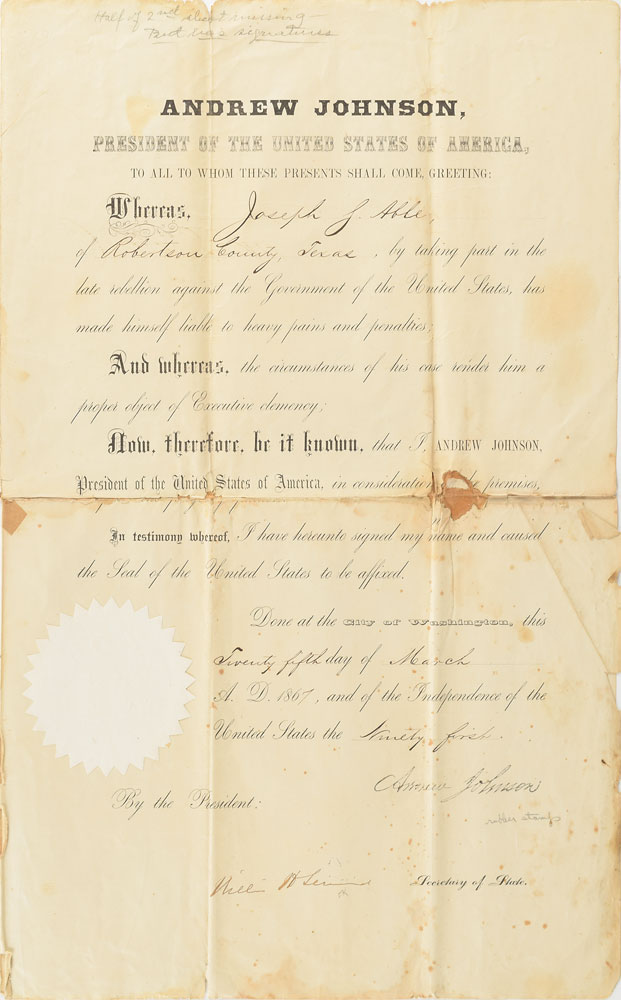 Half of 2nd sheet missing -
But has signatures
ANDREW JOHNSON,
PRESIDENT OF THE UNITED STATES OF AMERICA,
TO ALL TO WHOM THESE PRESENTS SHALL COME, GREETING:
Whereas, Joseph J. Able,
of Robertson County, Texas, by taking part in the
late rebellion against the Government of the United States, has
made himself liable to heavy pains and penalties;
And whereas, the circumstances of his case render him a
proper object of Executive clemency;
Now, therefore, be it known, that I, ANDREW JOHNSON,
President of the United States of America, in consideration of the premises,
In testimony whereof, I have hereunto signed my name and caused
the Seal of the United States to be affixed.
Done at the City of Washington, this
Twenty fifth day of March
A. D. 1867, and of the Independence of the
United States the Ninety first.
Andrew Johnson
rubber stamp
By the President:
Secretary of State.